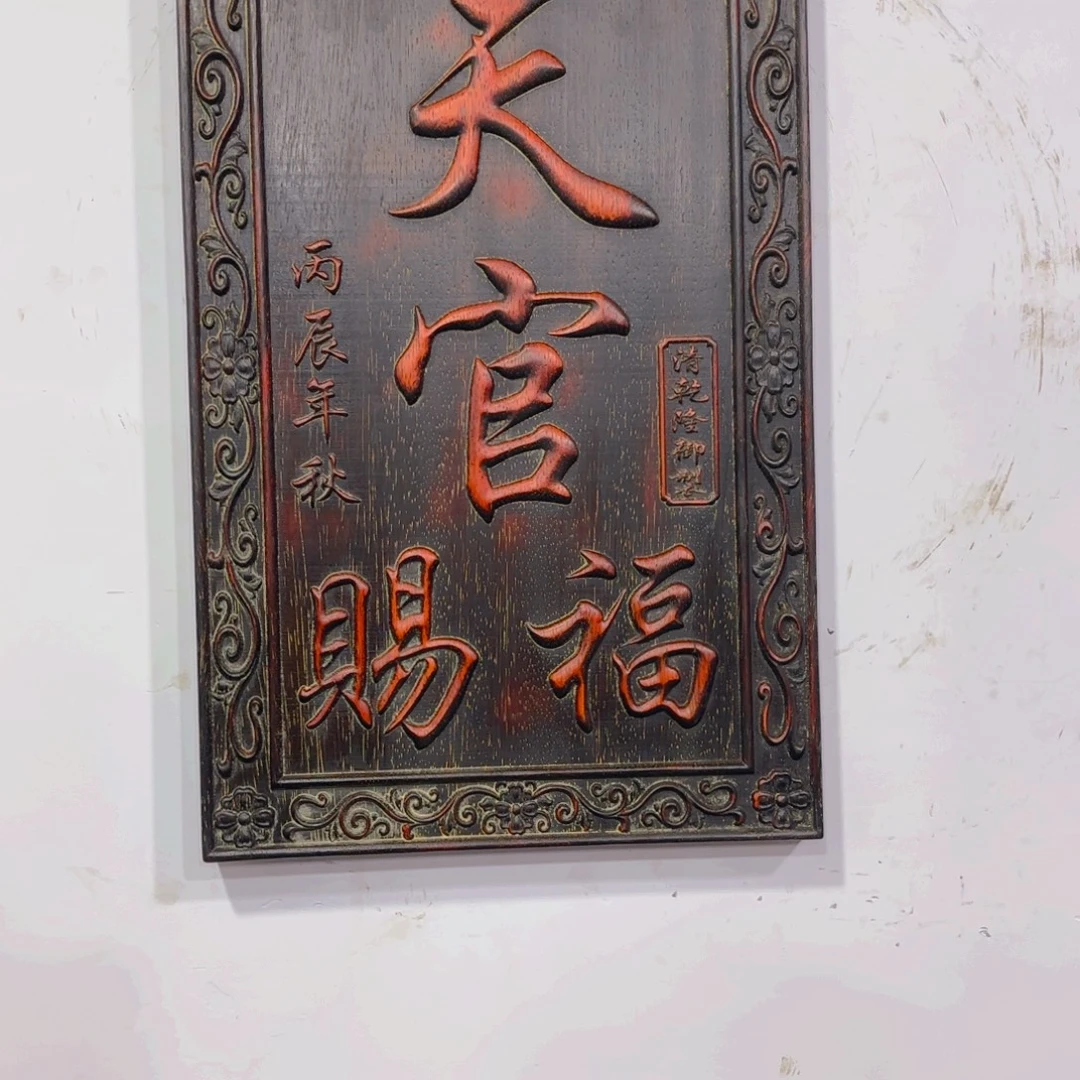 天
官
賜福
丙辰年秋
清乾隆御製